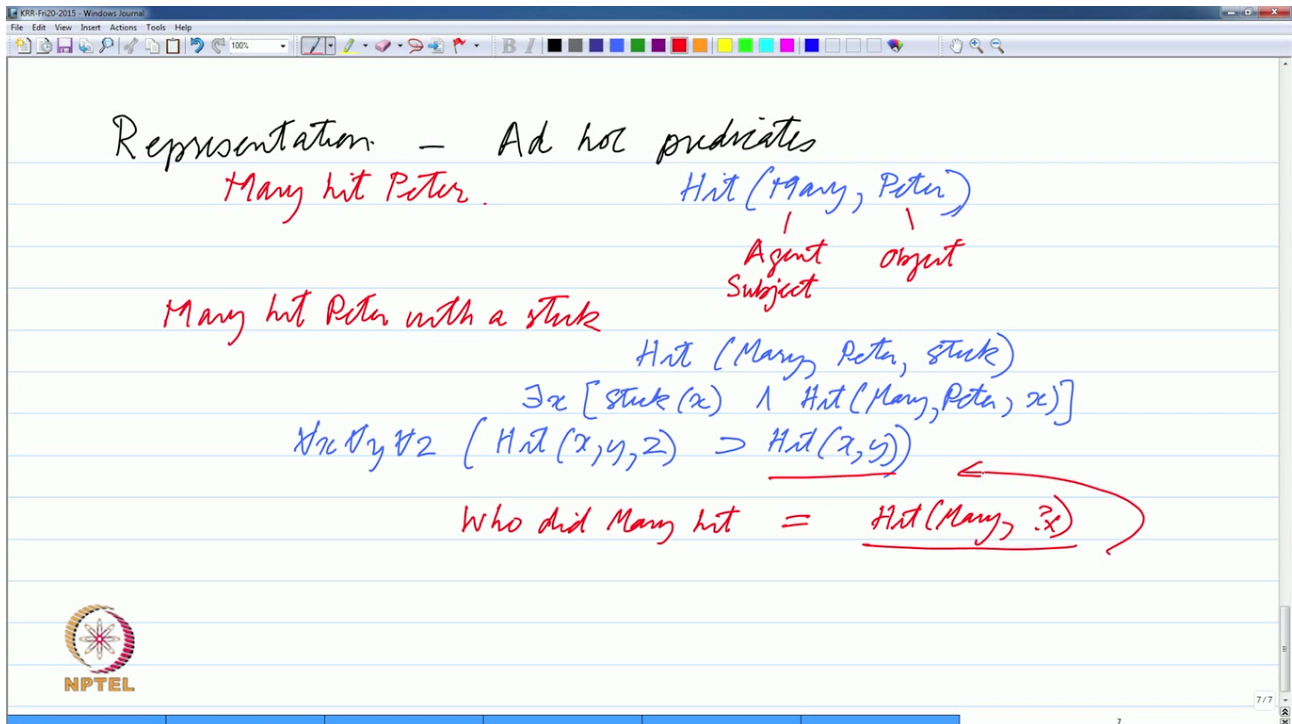 KRR-Fri20-2015 - Windows Journal
File Edit View Insert Actions Tools Help
100%
B I
Representation - Ad hoc predicates
Mary hit Peter. Hit (Mary, Peter)
Agent Object
Subject
Mary hit Peter with a stick
Hit (Mary, Peter, stick)
∃x [stick (x) ∧ Hit (Mary, Peter, x)]
∀x ∀y ∀z (Hit (x, y, z) ⊃ Hit (x, y))
Who did Mary hit = Hit (Mary, ?x)
NPTEL
7/7
7